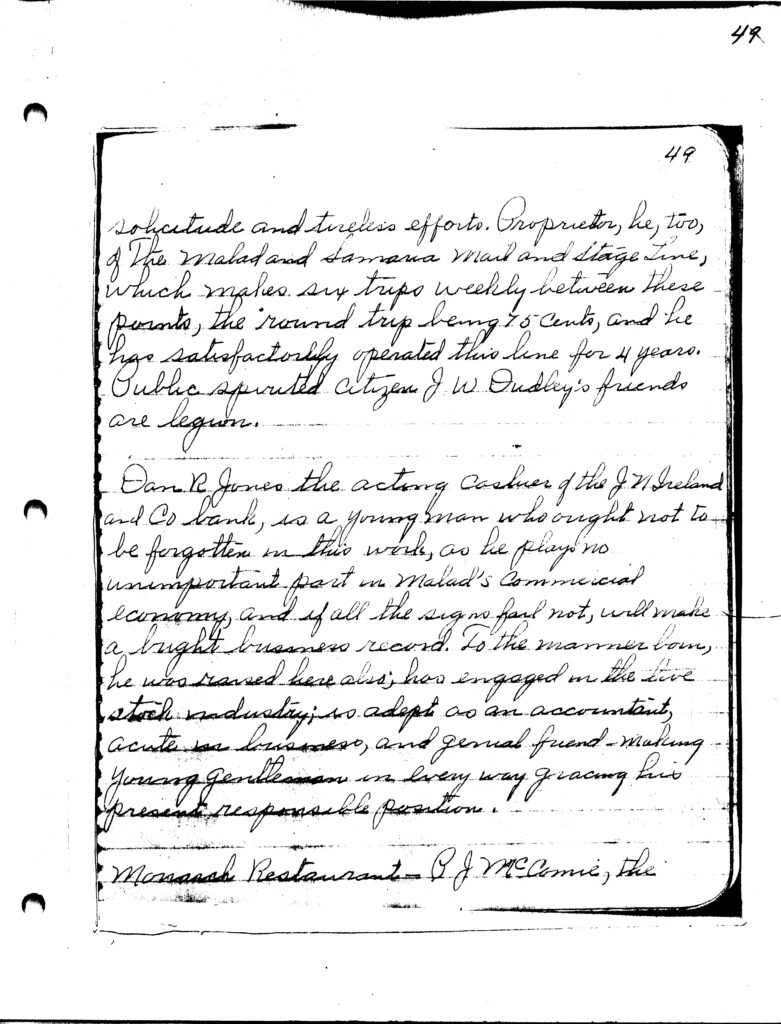 49
49
solicitude and tireless efforts. Proprietor, he, too,
of The Malad and Samaria Mail and Stage Line,
which makes six trips weekly between these
points, the 'round trip being 75 cents, and he
has satisfactorily operated this line for 4 years.
Public spirited citizen J W Dudley's friends
are legion.
Dan R Jones the acting cashier of the J N Ireland
and Co bank, is a young man who ought not to
be forgotten in this work, as he plays no
unimportant part in Malad's commercial
economy, and if all the signs fail not, will make
a bright business record. To the manner born,
he was raised here also; has engaged in the live
stock industry; is adept as an accountant,
acute in business, and genial friend-making
young gentleman in every way gracing his
present responsible position.
Monarch Restaurant - P J McComie, the